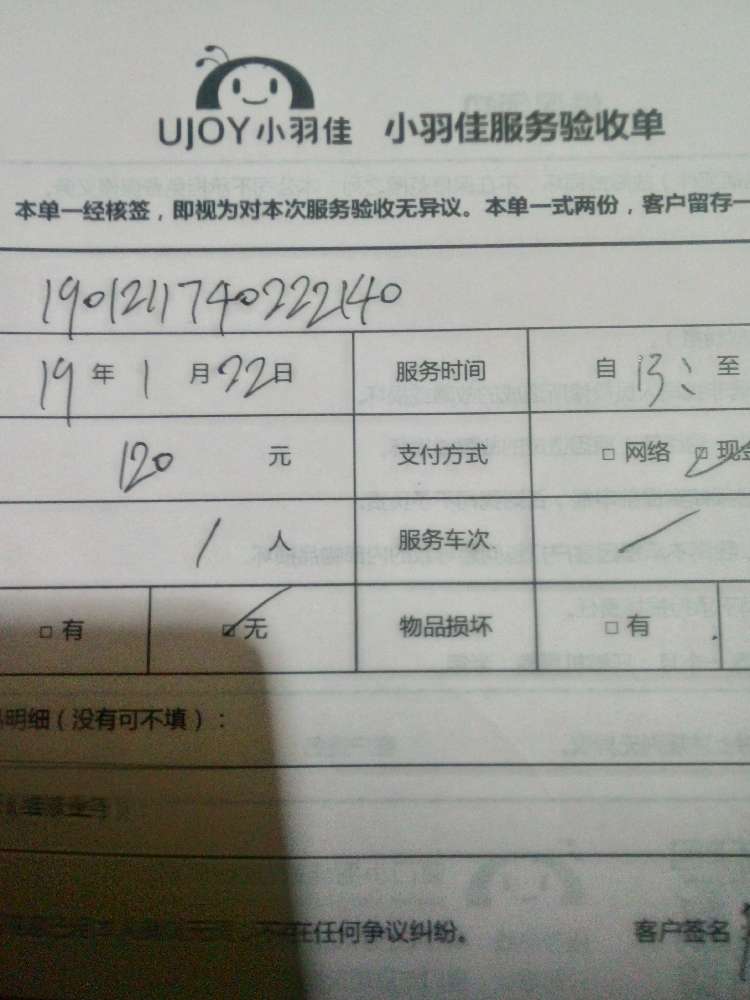 UJOY小羽佳 小羽佳服务验收单
本单一经核签，即视为对本次服务验收无异议。本单一式两份，客户留存一
1901211740222140
19年1月22日 服务时间 自13: 至
120元 支付方式 □网络 □现金
1人 服务车次
□有 □无 物品损坏 □有
明细（没有可不填）：
在任何争议纠纷。 客户签名